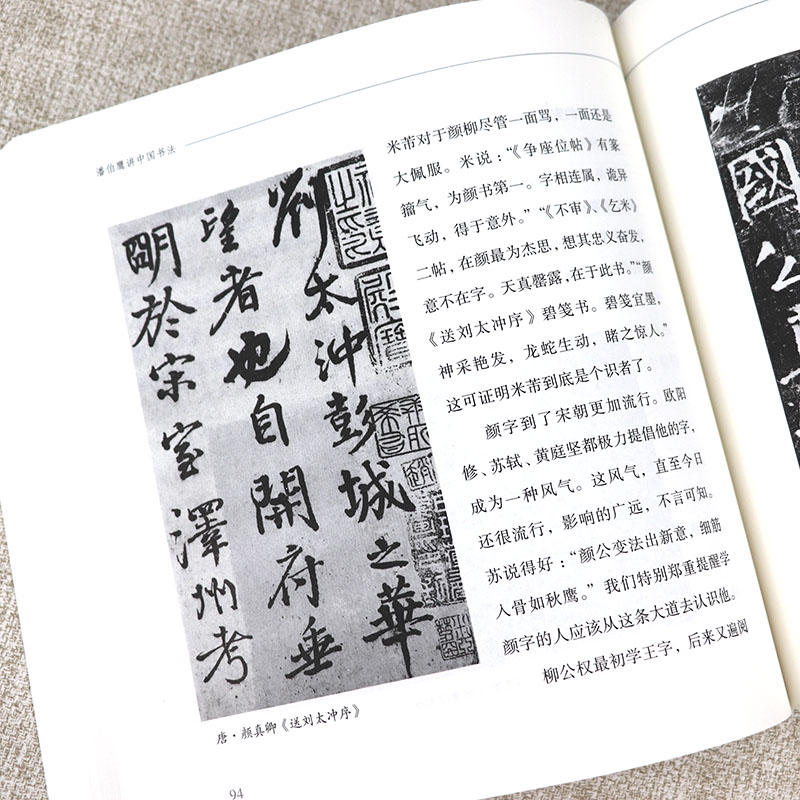 潘伯鹰讲中国书法
劉太沖彭城之華
望者也自開府垂
朙於宋室澤州考
唐·颜真卿《送刘太冲序》
94
米芾对于颜柳尽管一面骂，一面还是
大佩服。米说：“《争座位帖》有篆
籀气，为颜书第一。字相连属，诡异
飞动，得于意外。”“《不审》、《乞米》
二帖，在颜最为杰思，想其忠义奋发，
意不在字。天真罄露，在于此书。”“颜
《送刘太冲序》碧笺书。碧笺宜墨，
神采艳发，龙蛇生动，睹之惊人。”
这可证明米芾到底是个识者了。
颜字到了宋朝更加流行。欧阳
修、苏轼、黄庭坚都极力提倡他的字，
成为一种风气。这风气，直至今日
还很流行，影响的广远，不言可知。
苏说得好：“颜公变法出新意，细筋
入骨如秋鹰。”我们特别郑重提醒学
颜字的人应该从这条大道去认识他。
柳公权最初学王字，后来又遍阅
國公